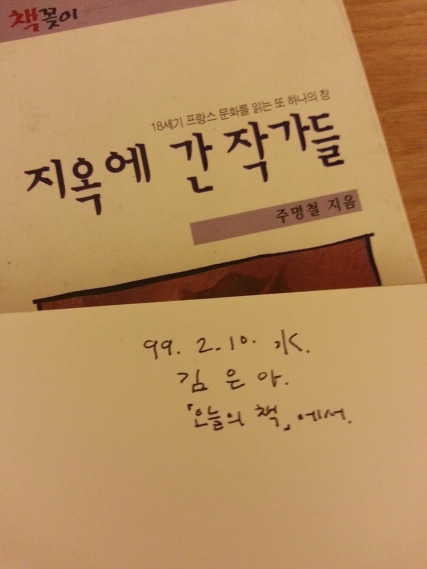 책꽂이
18세기 프랑스 문화를 읽는 또 하나의 창
지옥에 간 작가들
주명철 지음
99. 2. 10. 水.
김은아.
「오늘의 책」에서.